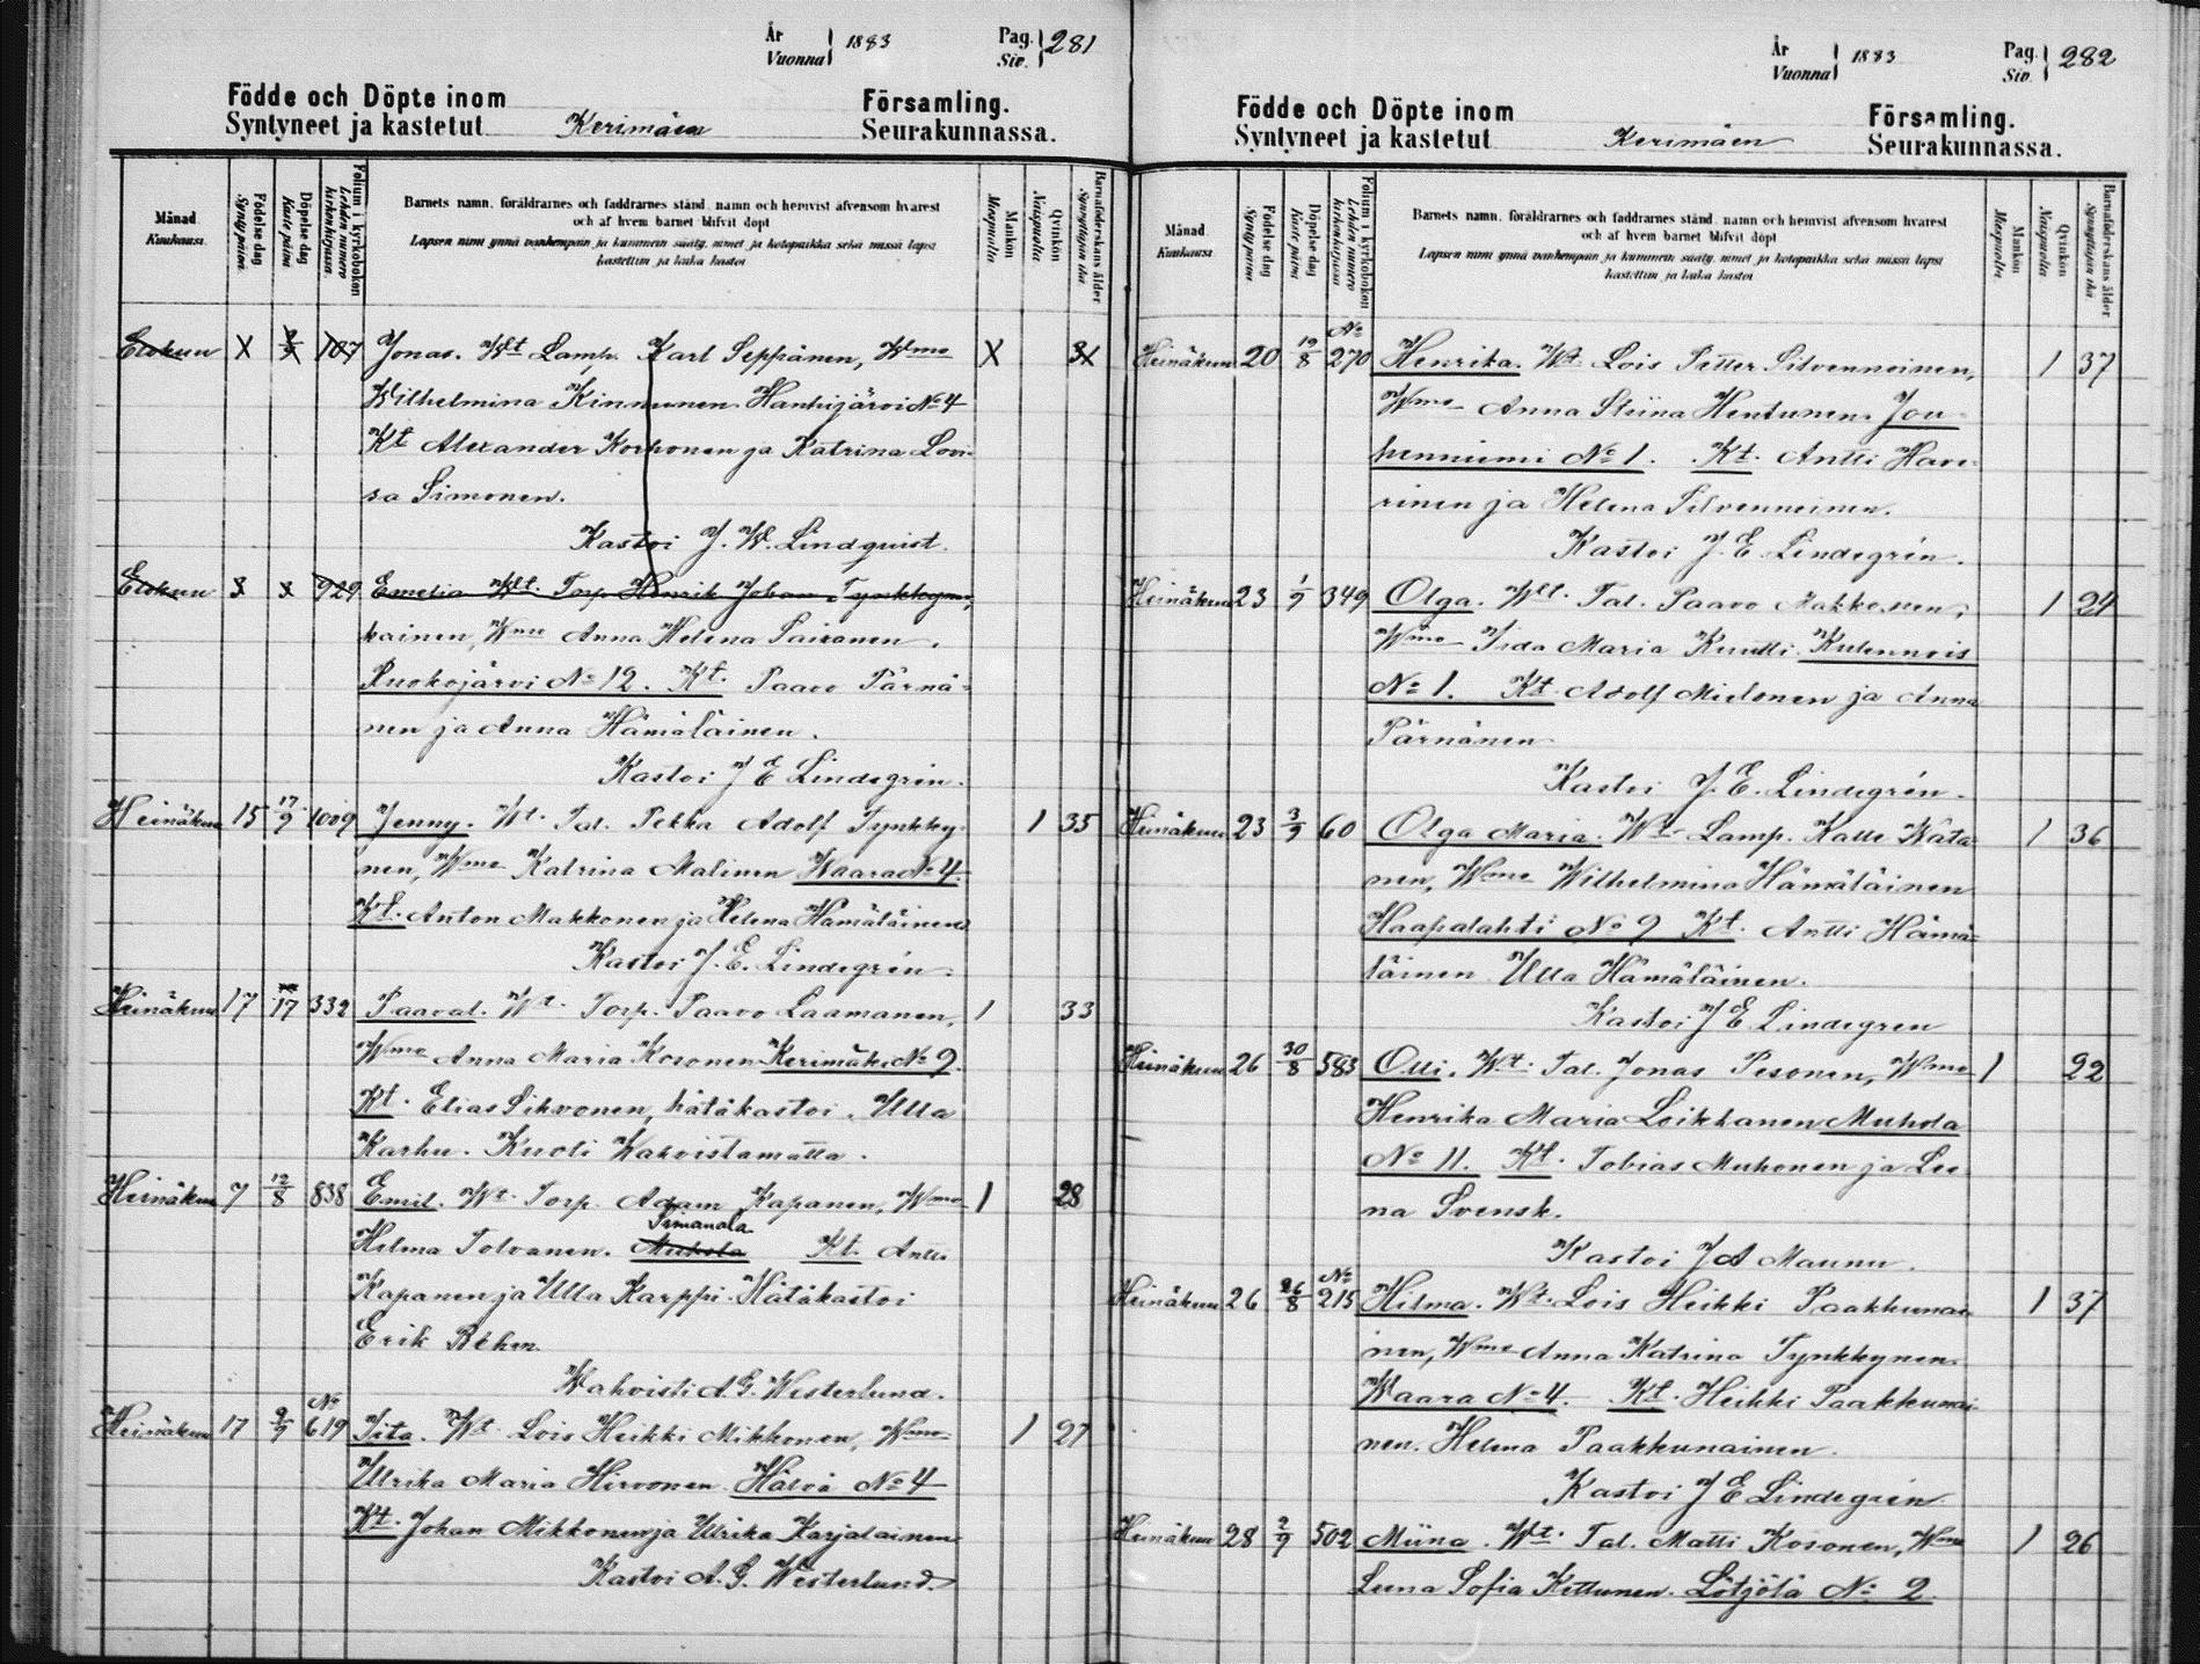 År
Vuonna 1883
Pag.
Siv. 281
Födde och Döpte inom Församling.
Syntyneet ja kastetut Kerimäen Seurakunnassa.
Månad Kuukausi
Födelse dag Syntypäivä
Döpelse dag Kaste päivä
Folium i kyrkoboken Lehden numero kirkonkirjassa
Barnets namn, föräldrarnes och faddrarnes stånd, namn och hemvist äfvensom hvarest
och af hvem barnet blifvit döpt
Lapsen nimi ynnä vanhempain ja kummein sääty, nimet ja kotopaikka sekä missä lapsi
kastettiin ja kuka kastoi
Mankön Miespuolia
Qvinkön Naispuolia
Barnaföderskans ålder Synnyttäjän ikä
Elokuu 107 Jonas. Wt Lamp. Karl Seppänen, Wmo X
Wilhelmina Kinnunen Hanhijärvi No 4
Kt Alexander Korhonen ja Katrina Lovi-
sa Simonen.
Kastoi J. W. Lindquist.
Elokuu 929 Emelia Wt. Torp Henrik Johan Tynkkyn-
kainen, Wmo Anna Helena Paivanen.
Ruokojärvi No 12. Kt. Paavo Pärnä-
nen ja Anna Hämäläinen.
Kastoi J E Lindegrén.
Heinäkuu 15 17/9 1009 Jenny. Wt. Tal. Pekka Adolf Tynkky- 1 35
nen, Wmo Katrina Malinen Waara No 4.
Kt. Anton Makkonen ja Helena Hämäläinen
Kastoi J. E. Lindegrén.
Heinäkuu 17 17 332 Paaval. Wt. Torp. Paavo Laamanen, 1 33
Wmo Anna Maria Kosonen Kerimäki No 9.
Kt. Elias Sihvonen, hätäkastoi. Ulla
Karhu. Kuoli Wahvistamatta.
Heinäkuu 7 12/8 838 Emil. Wt. Torp. Adam Kapanen, Wmo 1 28
Simanala
Hilma Tolvanen. Muhola Kt. Antti
Kapanen ja Ulla Karppi. Hätäkastoi
Erik Behm.
Wahvisti A. G. Westerlund.
Heinäkuu 17 2/9 No 619 Iita. Wt. Lois Heikki Mikkonen, Wmo 1 27
Ulrika Maria Hirvonen. Hälvä No 4
Kt. Johan Mikkonen ja Ulrika Karjalainen
Kastoi A. G. Westerlund.
År
Vuonna 1883
Pag.
Siv. 282
Födde och Döpte inom Församling.
Syntyneet ja kastetut Kerimäen Seurakunnassa.
Månad Kuukausi
Födelse dag Syntypäivä
Döpelse dag Kaste päivä
Folium i kyrkoboken Lehden numero kirkonkirjassa
Barnets namn, föräldrarnes och faddrarnes stånd, namn och hemvist äfvensom hvarest
och af hvem barnet blifvit döpt
Lapsen nimi ynnä vanhempain ja kummein sääty, nimet ja kotopaikka sekä missä lapsi
kastettiin ja kuka kastoi
Mankön Miespuolia
Qvinkön Naispuolia
Barnaföderskans ålder Synnyttäjän ikä
Heinäkuu 20 19/8 No 270 Henrika. Wt. Lois Petter Silvennoinen, 1 37
Wmo Anna Stiina Hentunen. Jou-
henniemi No 1. Kt. Antti Have-
rinen ja Helena Silvennoinen.
Kastoi J. E. Lindegrén.
Heinäkuu 23 1/9 349 Olga. Wt. Tal. Paavo Makkonen, 1 24
Wmo Iida Maria Kuutti. Kulennois
No 1. Kt. Adolf Mielonen ja Anna
Pärnänen
Kastoi J. E. Lindegrén.
Heinäkuu 23 3/9 60 Olga Maria. Wt. Lamp. Kalle Wäta- 1 36
nen, Wmo Wilhelmina Hämäläinen
Haapalahti No 9 Kt. Antti Hämä-
läinen Ulla Hämäläinen.
Kastoi J E Lindegren
Heinäkuu 26 30/8 583 Olli. Wt. Tal. Jonas Pesonen, Wmo 1 22
Henrika Maria Loikkanen Muhola
No 11. Kt. Tobias Muhonen ja Lee-
na Svensk.
Kastoi J A Maunu.
Heinäkuu 26 26/8 No 215 Hilma. Wt. Lois Heikki Paakkunai- 1 37
nen, Wmo Anna Katrina Tynkkynen.
Waara No 4. Kt. Heikki Paakkunai-
nen. Helena Paakkunainen.
Kastoi J E Lindegrén
Heinäkuu 28 2/9 502 Miina. Wt. Tal. Matti Kosonen, Wmo 1 26
Leena Sofia Kettunen. Lötjölä No 2.